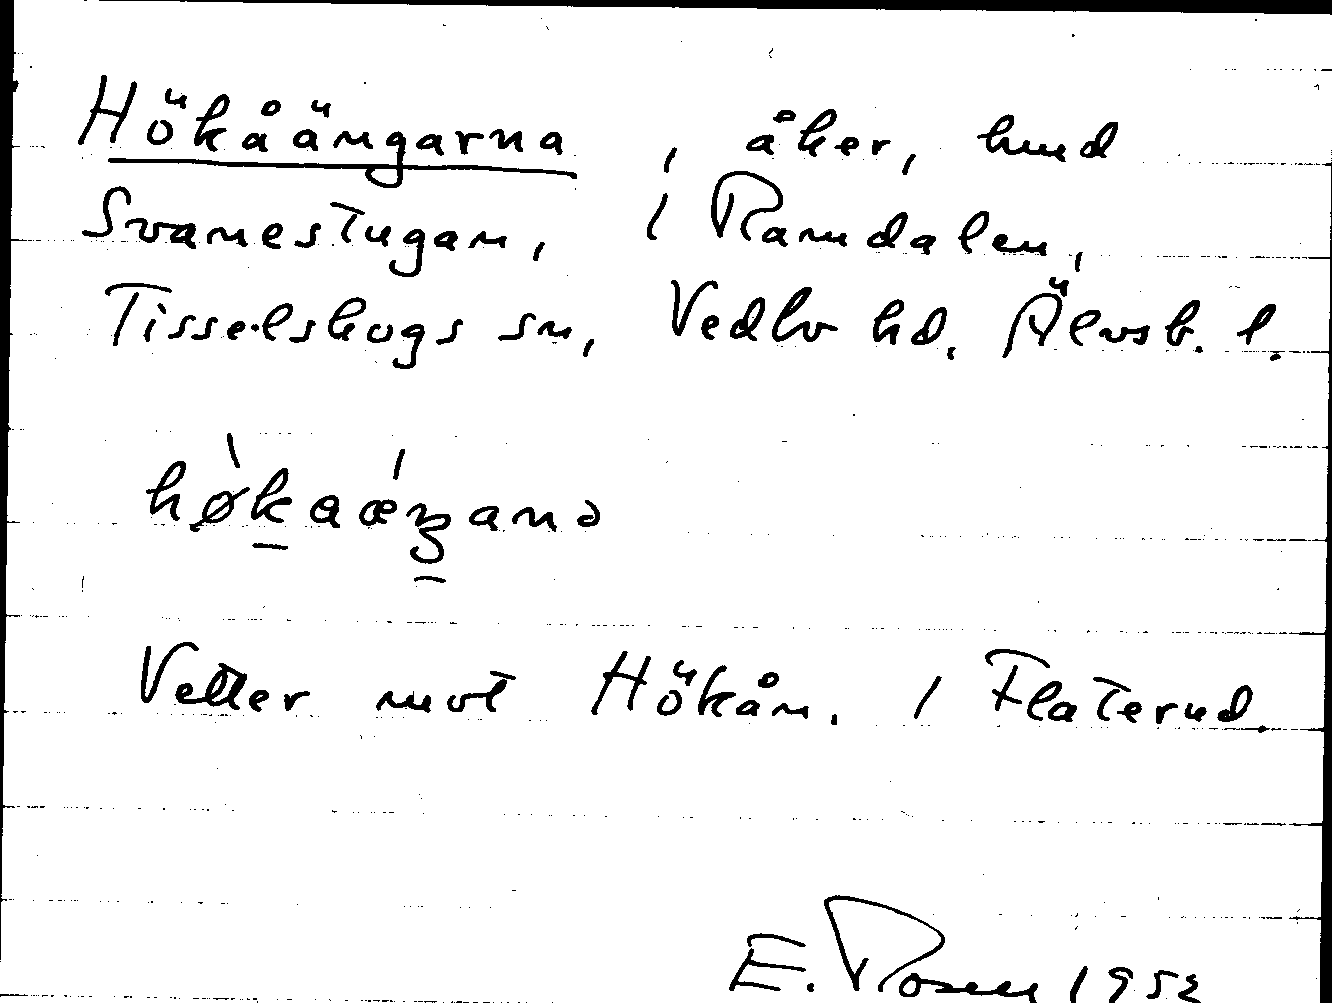 Hökåängarna, åker, hmd
Svanestugan, / Ramdalen,
Tisselskogs sn, Vedbo hd. Älvsb. l.
hø̀kaǽŋanə
Vetter mot Hökån. / Flaterud.
E. Rosen 1952